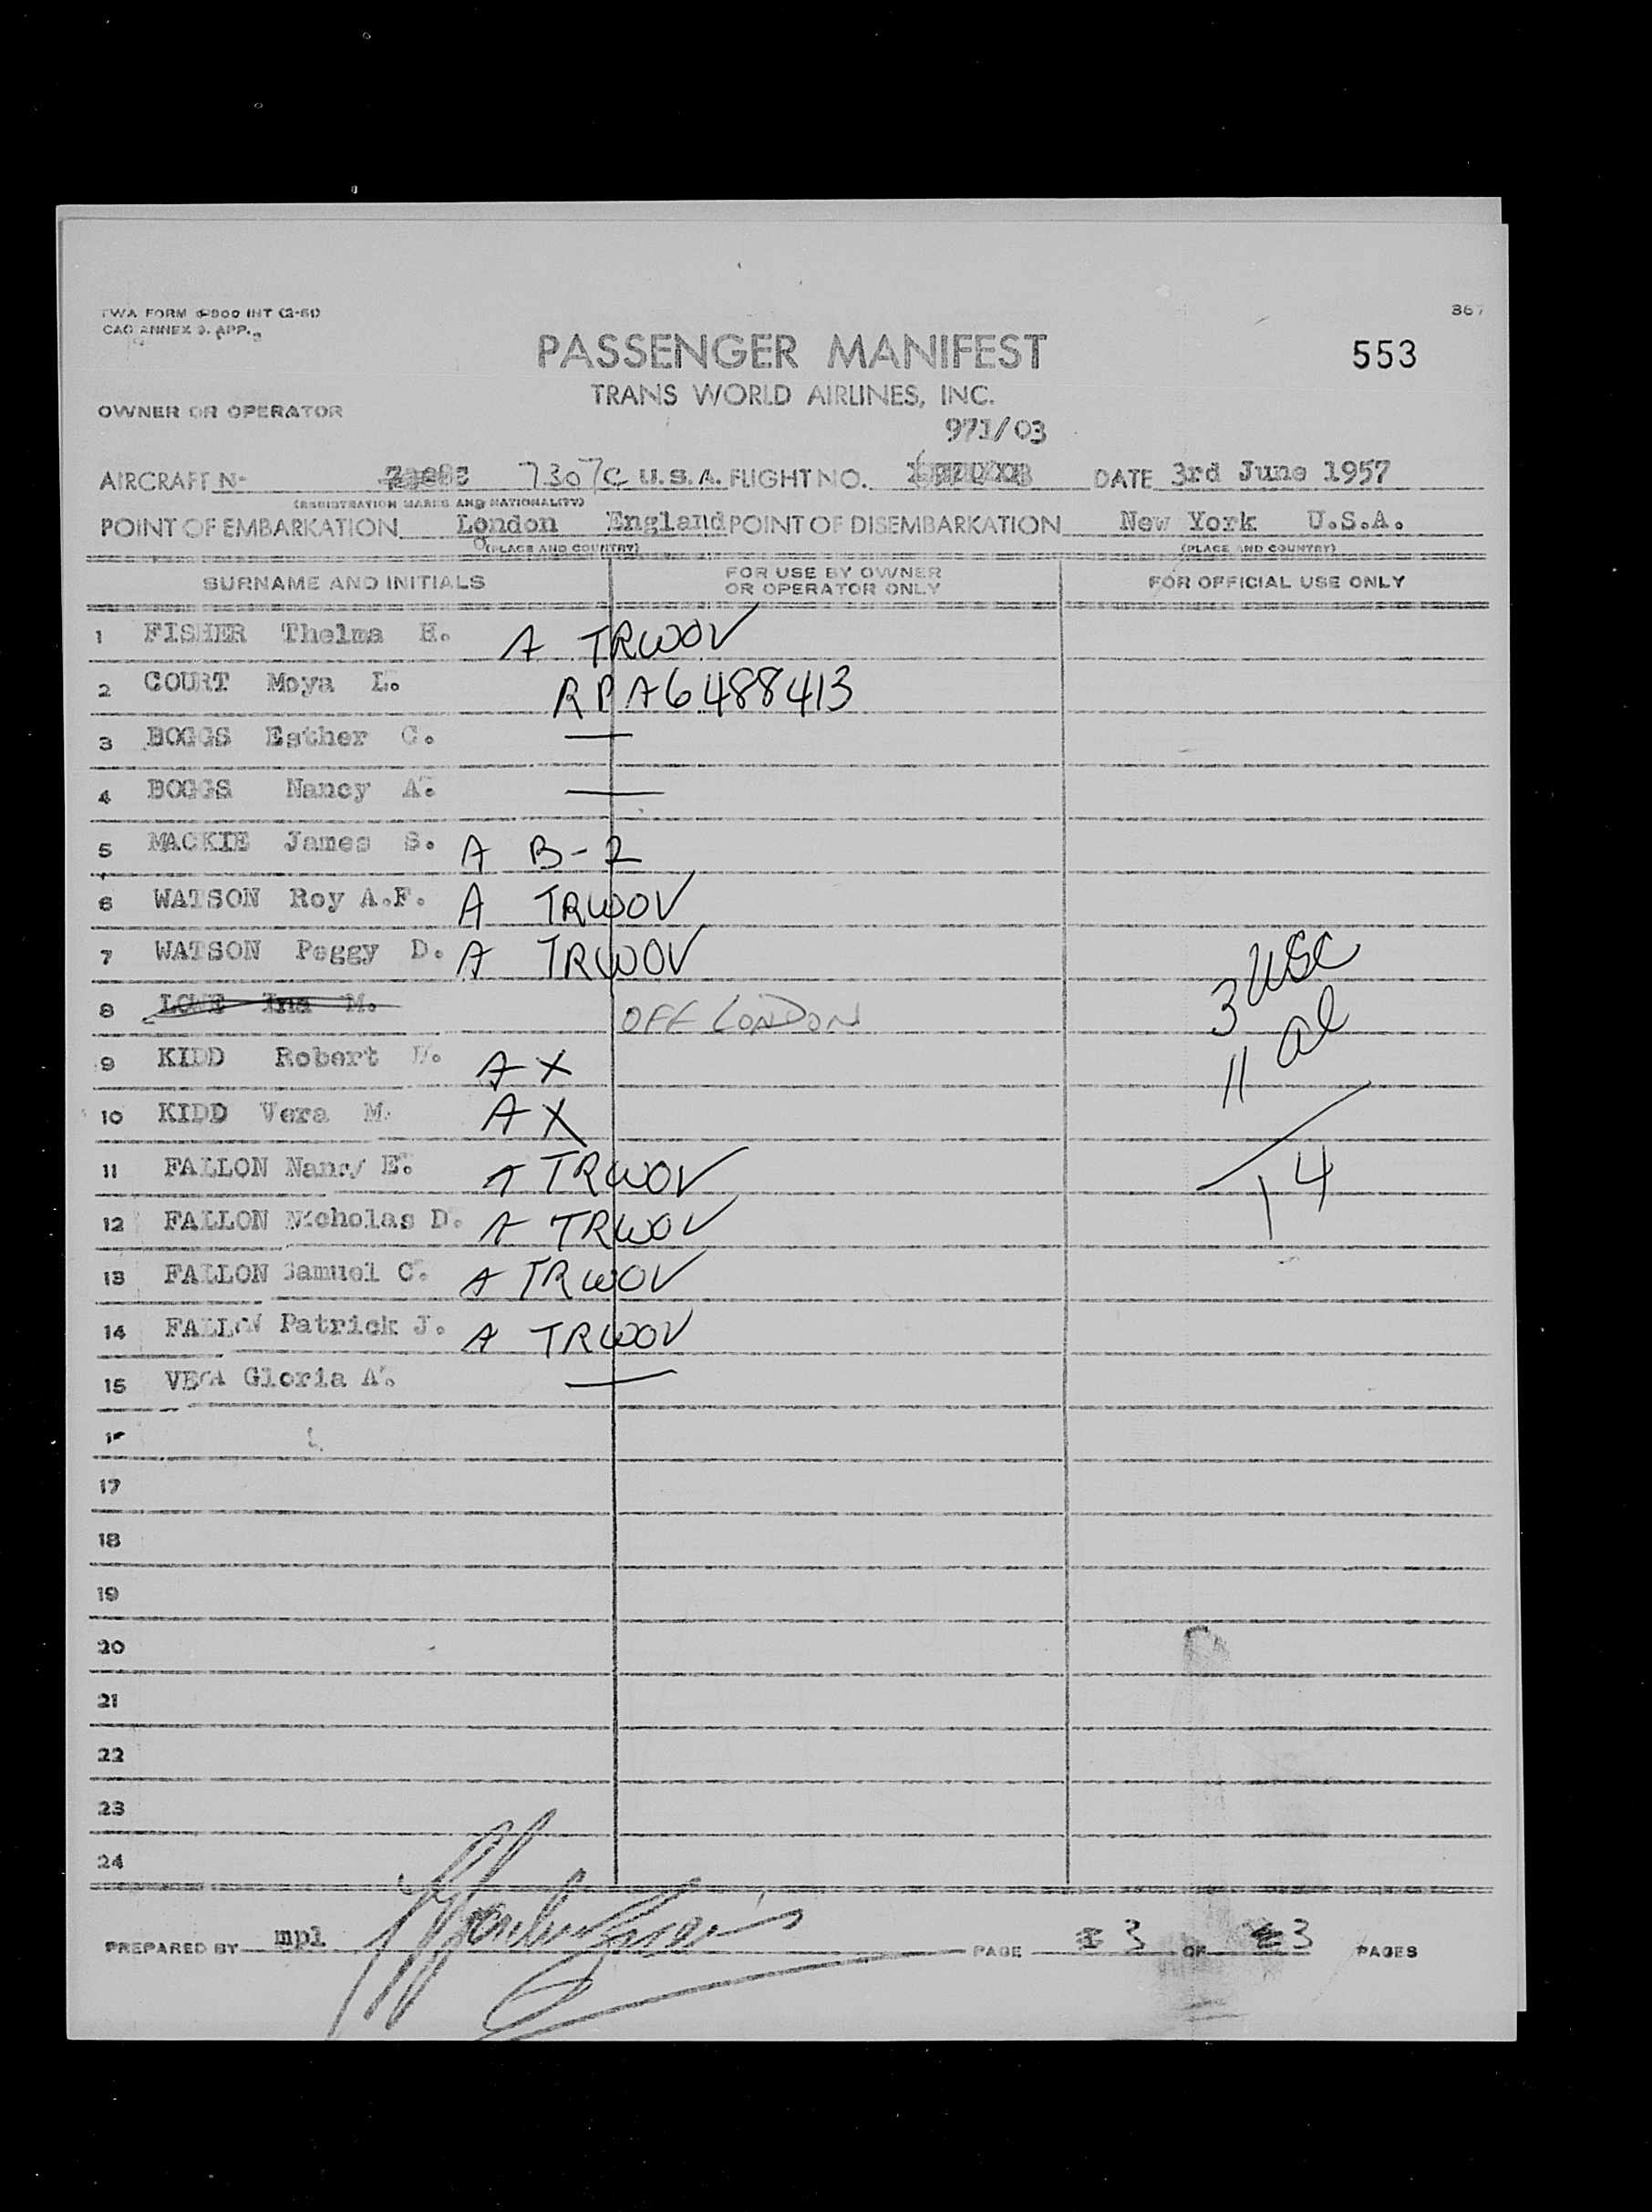 TWA FORM INT (2-51)
CAO ANNEX 9. APP.
PASSENGER MANIFEST
553
TRANS WORLD AIRLINES, INC.
OWNER OR OPERATOR
971/03
AIRCRAFT N- 7307C U.S.A. FLIGHT NO. DATE 3rd June 1957
(REGISTRATION MARKS AND NATIONALITY)
POINT OF EMBARKATION London England POINT OF DISEMBARKATION New York U.S.A.
(PLACE AND COUNTRY) (PLACE AND COUNTRY)
SURNAME AND INITIALS FOR USE BY OWNER OR OPERATOR ONLY FOR OFFICIAL USE ONLY
1 FISHER Thelma H. A TRWOV
2 COURT Moya L. RP A6488413
3 BOGGS Esther C. —
4 BOGGS Nancy A. —
5 MACKIE James S. A B-2
6 WATSON Roy A.F. A TRWOV
7 WATSON Peggy D. A TRWOV
3 USC
8 LOWE Ina M. OFF LONDON
11 al
9 KIDD Robert A X
10 KIDD Vera M. A X
11 FALLON Nancy E. A TRWOV
14
12 FALLON Nicholas D. A TRWOV
13 FALLON Samuel C. A TRWOV
14 FALLON Patrick J. A TRWOV
15 VEGA Gloria A. —
17
18
19
20
21
22
23
24
PREPARED BY mpl PAGE 3 OF 3 PAGES